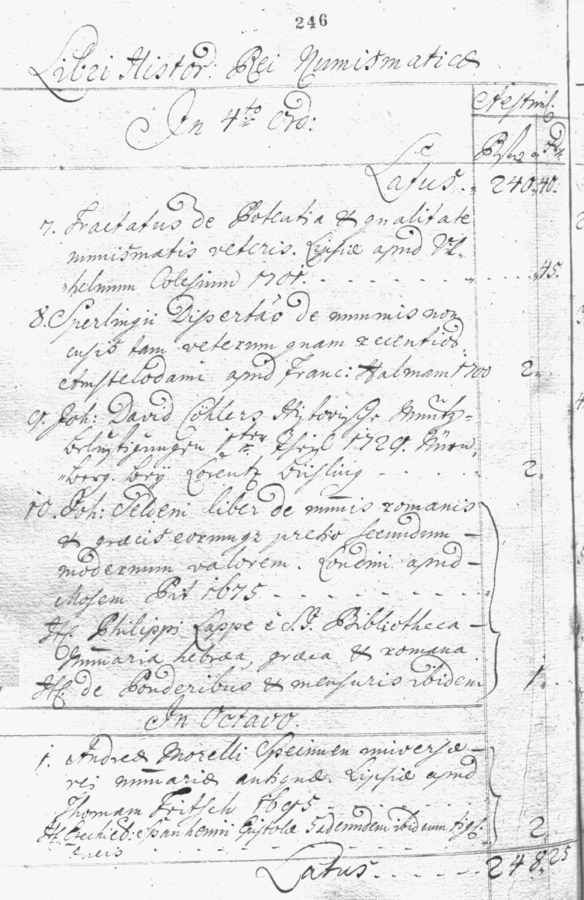 246
Libri Histor: Rei Numismaticæ
In 4to Ord:
Aestim:
Latus. 240. 40.
7. Tractatus de Potentia & qualitate
numismatis veteris. Lipsiæ apud Vil-
helmum Colesium 1701. 45.
8. Sperlingii Dissertão de nummis non
cusis tam veterum quam recentiod
Amstelodami apud Franc: Halmam 1700 2.
9. Joh: David Cöhlers Historische Müntz-
belustigungen 1ster Theil 1729. Nürn-
berg. beÿ 2.
10. Joh: Seldeni liber de numis romanis
& græcis eorumqz pretio secundum
modernum valorem. Londini apud
Mosem Pit 1675
It: Philippi Lappe è S.J. Bibliotheca
Numaria hebræa, græca & romana
It: de Ponderibus & mensuris ibidem 1.
In Octavo.
1. Andreæ Morelli Specimen universæ
rei numariæ antiquæ. Lipsiæ apud
Thomam Fritsch 1695
It: Ezechiel: Spanhemii Epistolæ 5 ad eundem ibidem 2
Latus. 248. 25